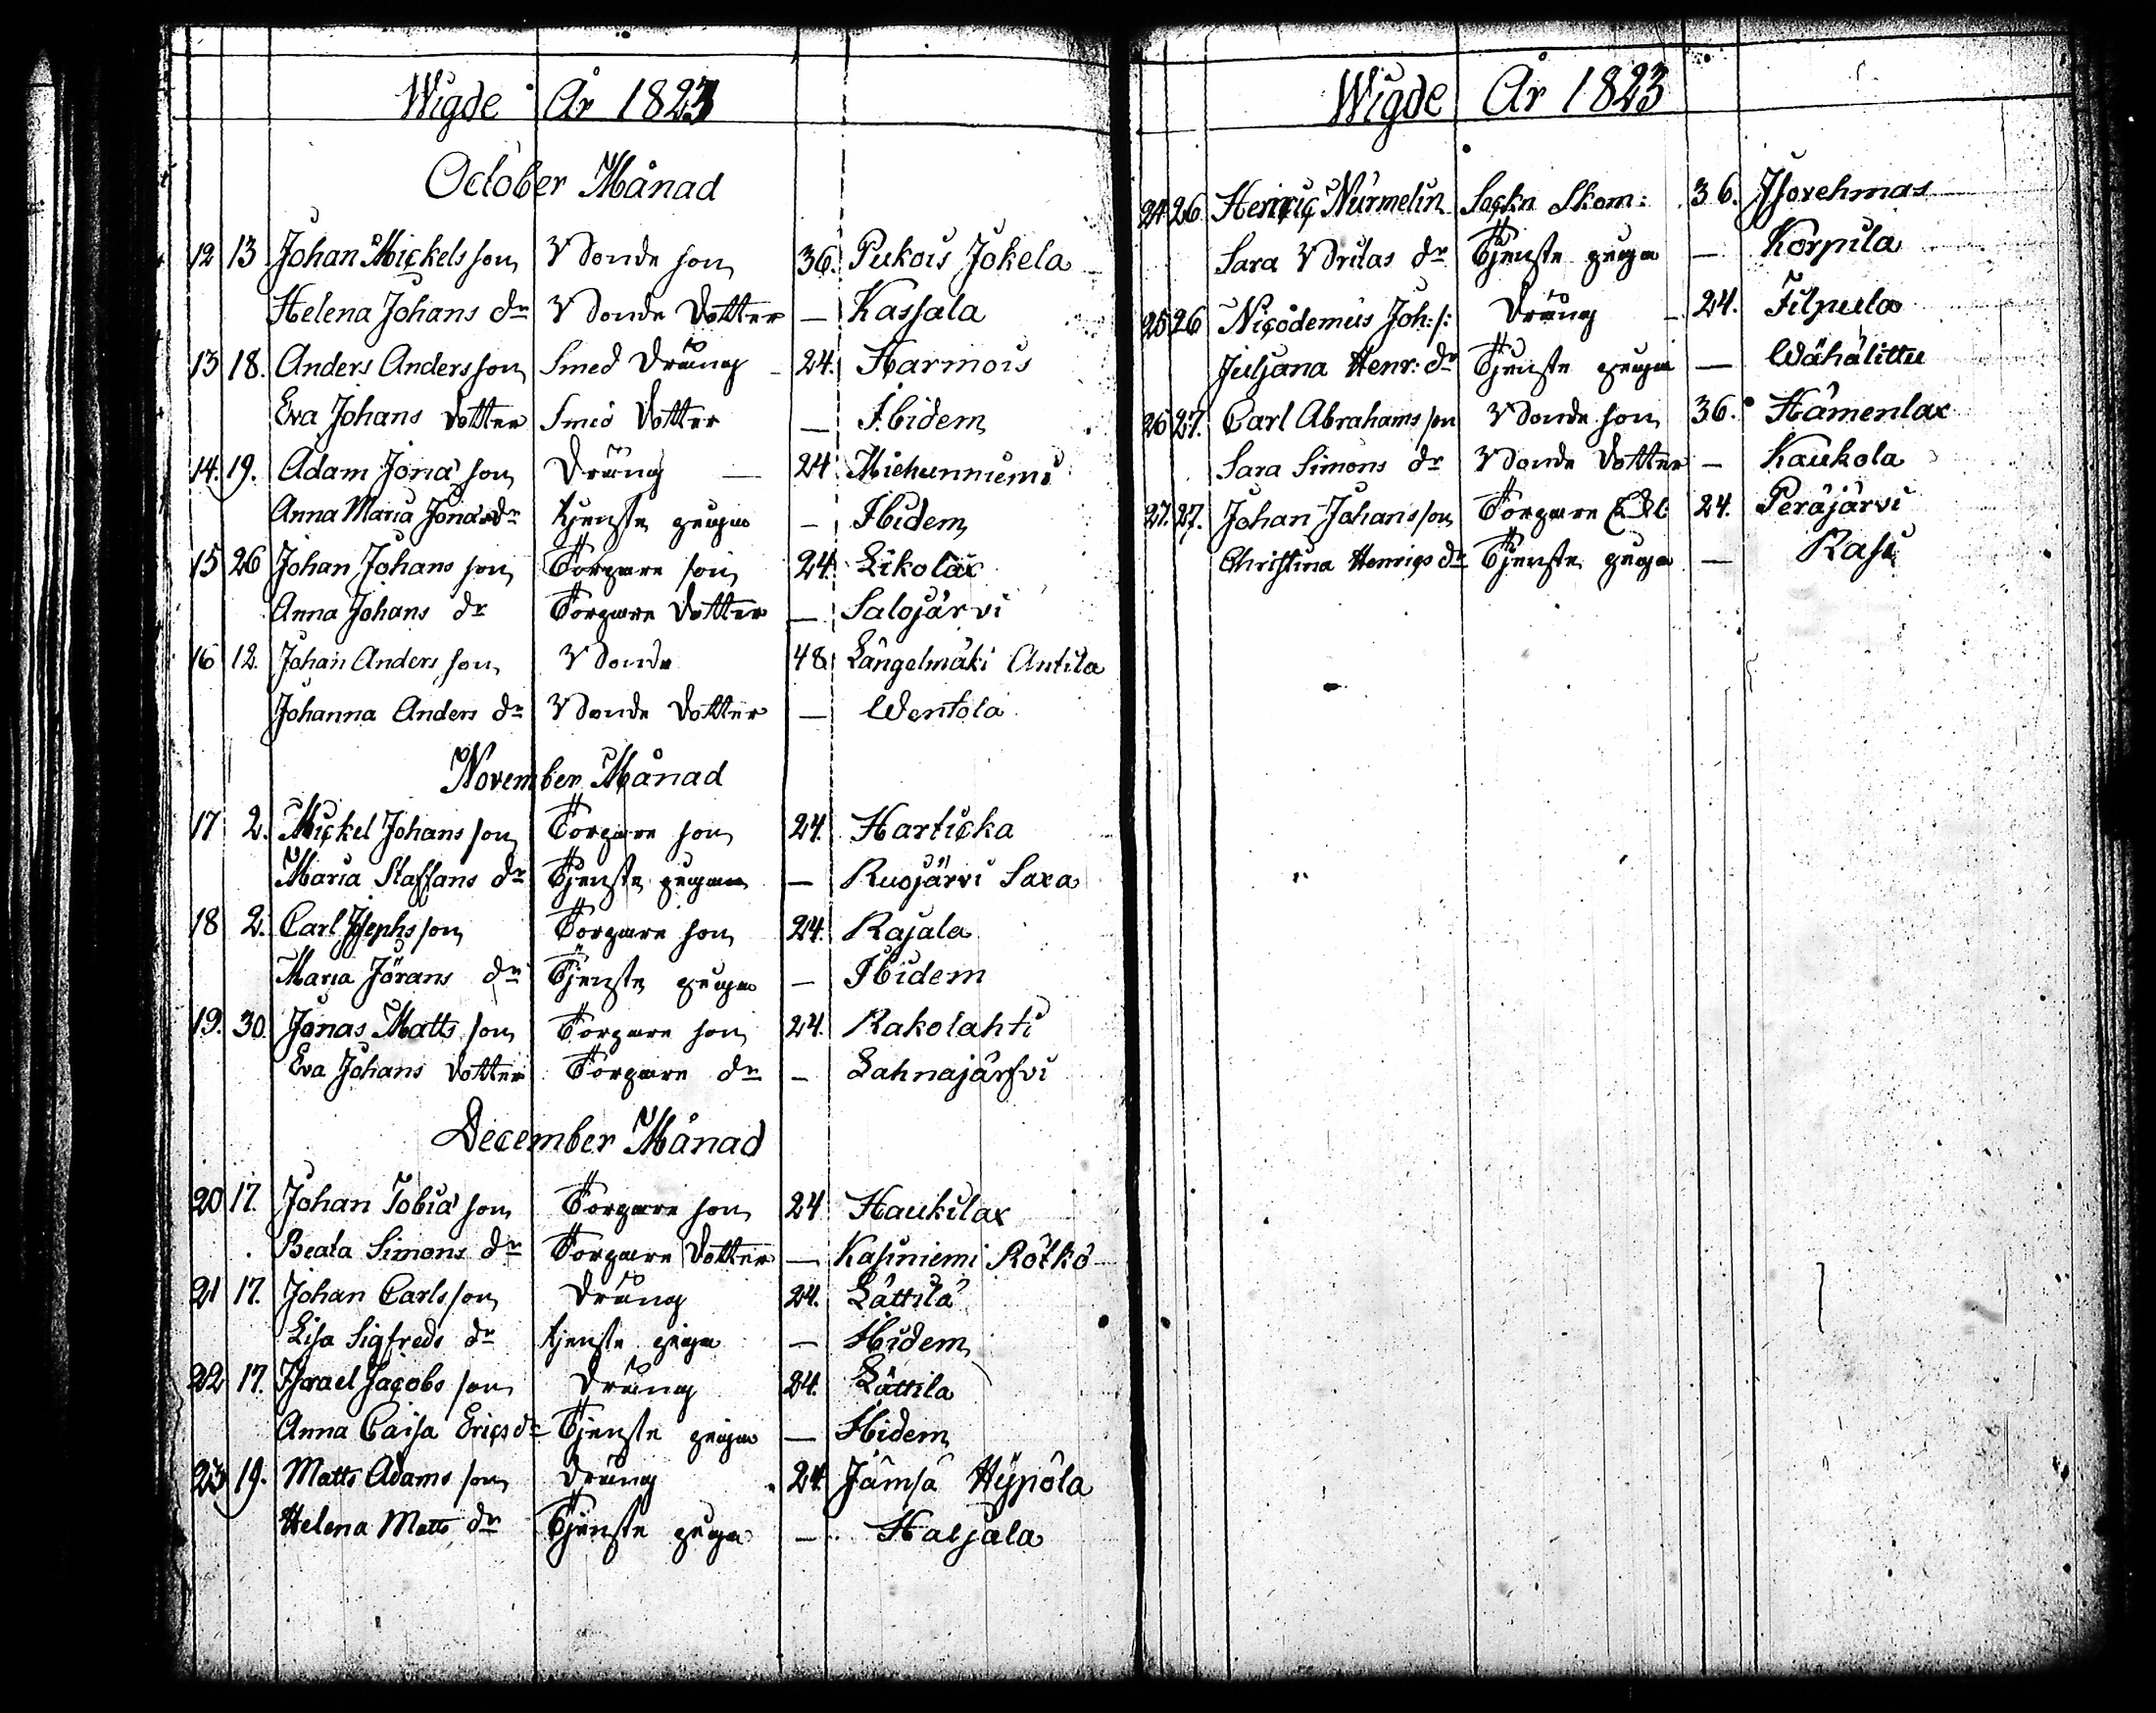 Wigde År 1823
October Månad
12 13 Johan Mickels son Bonde son 36. Pukois Jokela
Helena Johans dr Bonde Dotter — Kassala
13 18. Anders Anders son Smed Dräng - 24. Harmois
Eva Johans Dotter Smed Dotter — Ibidem
14. 19. Adam Jona son Dräng — 24 Miehunniemi
Anna Maria Jonæ dr tjenste piga — Ibidem
15 26 Johan Johans son Torpare son 24. Likolax
Anna Johans dr Torpare Dotter — Salojärvi
16 12. Johan Anders son Bonde 48 Längelmäki Antila
Johanna Anders dr Bonde Dotter — Wentola
November Månad
17 2. Mickel Johans son Torpare son 24. Harticka
Maria Staffans dr Tjenste pigan — Ruojärvi Saxa
18 2. Carl Josephs son Torpare son 24. Rajala
Maria Jörans dr Tjenste piga — Ibidem
19. 30. Jonas Matts son Torpare son 24. Rakolahti
Eva Johans Dotter Torpare dr - Lahnajärfvi
December Månad
20 17. Johan Tobia son Torpare son 24 Haukilax
Beata Simons dr Torpare Dotter — Kasiniemi Rötkö
21 17. Johan Carls son Dräng 24. Lättilä
Lisa Sigfreds dr tjenste piga — Ibidem
22 17. Israel Jacobs son Dräng 24. Lättila
Anna Caisa Erics dr Tjenste piga — Ibidem
23 19. Matts Adams son Dräng 24. Jämsä Hypölä
Helena Matts dr Tjenste piga — Haljala
Wigde År 1823
24 26 Henric Nurmelin Sockn Skom: 36. Isorehmas
Sara Britas dr Tjenste piga — Korpila
25 26 Nicodemus Joh: s: Dräng - 24. Filpula
Juljana Henr: dr Tjenste piga — Wähälittu
26 27. Carl Abrahams son Bonde son 36. Hämenlax
Sara Simons dr Bonde Dotter — Kaukola
27. 27. Johan Johans son Torpare 24. Peräjärvi
Christina Henrics dr Tjenste piga — Rasi